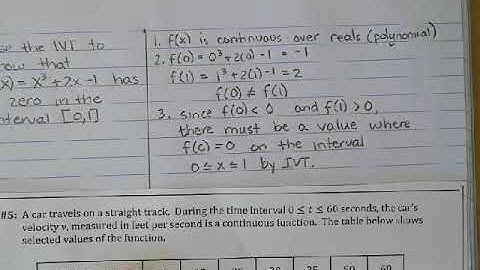 se the IVT to
now that
(x) = x³ + 2x - 1 has
zero in the
nterval [0,1]
1. f(x) is continuous over reals (polynomial)
2. f(0) = 0³ + 2(0) - 1 = -1
f(1) = 1³ + 2(1) - 1 = 2
f(0) ≠ f(1)
3. since f(0) < 0 and f(1) > 0,
there must be a value where
f(c) = 0 on the interval
0 ≤ x ≤ 1 by IVT.
#5: A car travels on a straight track. During the time interval 0 ≤ t ≤ 60 seconds, the car's
velocity v, measured in feet per second is a continuous function. The table below shows
selected values of the function.